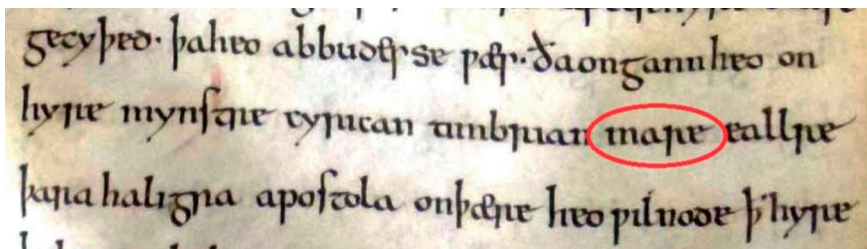 gecyþed· þaheo abbudesse ƿæs·. ðaongannheo on
hyre mynstre cyrican timbrian inare eallre
þara haligra apostola onþære heo ƿilnode ꝥ hyre